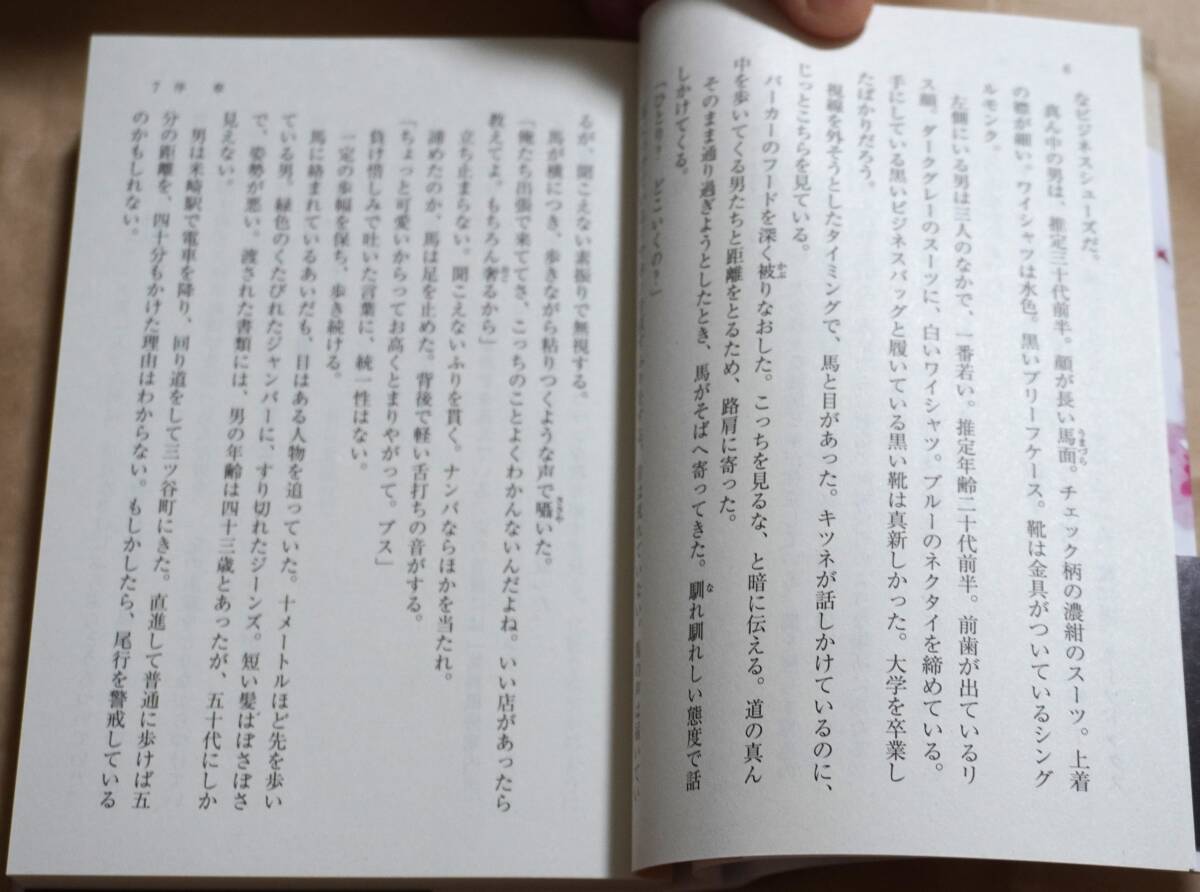 6
なビジネスシューズだ。
真ん中の男は、推定三十代前半。顔が長い馬面。チェック柄の濃紺のスーツ。上着
うまづら
の襟が細い。ワイシャツは水色。黒いブリーフケース。靴は金具がついているシング
ルモンク。
左側にいる男は三人のなかで、一番若い。推定年齢二十代前半。前歯が出ているリ
ス顔。ダークグレーのスーツに、白いワイシャツ。ブルーのネクタイを締めている。
手にしている黒いビジネスバッグと履いている黒い靴は真新しかった。大学を卒業し
たばかりだろう。
視線を外そうとしたタイミングで、馬と目があった。キツネが話しかけているのに、
じっとこちらを見ている。
パーカーのフードを深く被りなおした。こっちを見るな、と暗に伝える。道の真ん
かぶ
中を歩いてくる男たちと距離をとるため、路肩に寄った。
そのまま過り過ぎようとしたとき、馬がそばへ寄ってきた。馴れ馴れしい態度で話
な
しかけてくる。
「ひとり？　どこいくの？」
7 序章
るが、聞こえない素振りで無視する。
馬が横につき、歩きながら粘りつくような声で囁いた。
ささや
「俺たち出張で来ててさ、こっちのことよくわかんないんだよね。いい店があったら
教えてよ。もちろん奢るから」
おご
立ち止まらない。聞こえないふりを貫く。ナンパならほかを当たれ。
諦めたのか、馬は足を止めた。背後で軽い舌打ちの音がする。
「ちょっと可愛いからってお高くとまりやがって。ブス」
負け惜しみで吐いた言葉に、統一性はない。
一定の歩幅を保ち、歩き続ける。
馬に絡まれているあいだも、目はある人物を追っていた。十メートルほど先を歩い
ている男。緑色のくたびれたジャンパーに、すり切れたジーンズ。短い髪はぼさぼさ
で、姿勢が悪い。渡された書類には、男の年齢は四十三歳とあったが、五十代にしか
見えない。
男は米崎駅で電車を降り、回り道をして三ツ谷町にきた。直進して普通に歩けば五
分の距離を、四十分もかけた理由はわからない。もしかしたら、尾行を警戒している
のかもしれない。